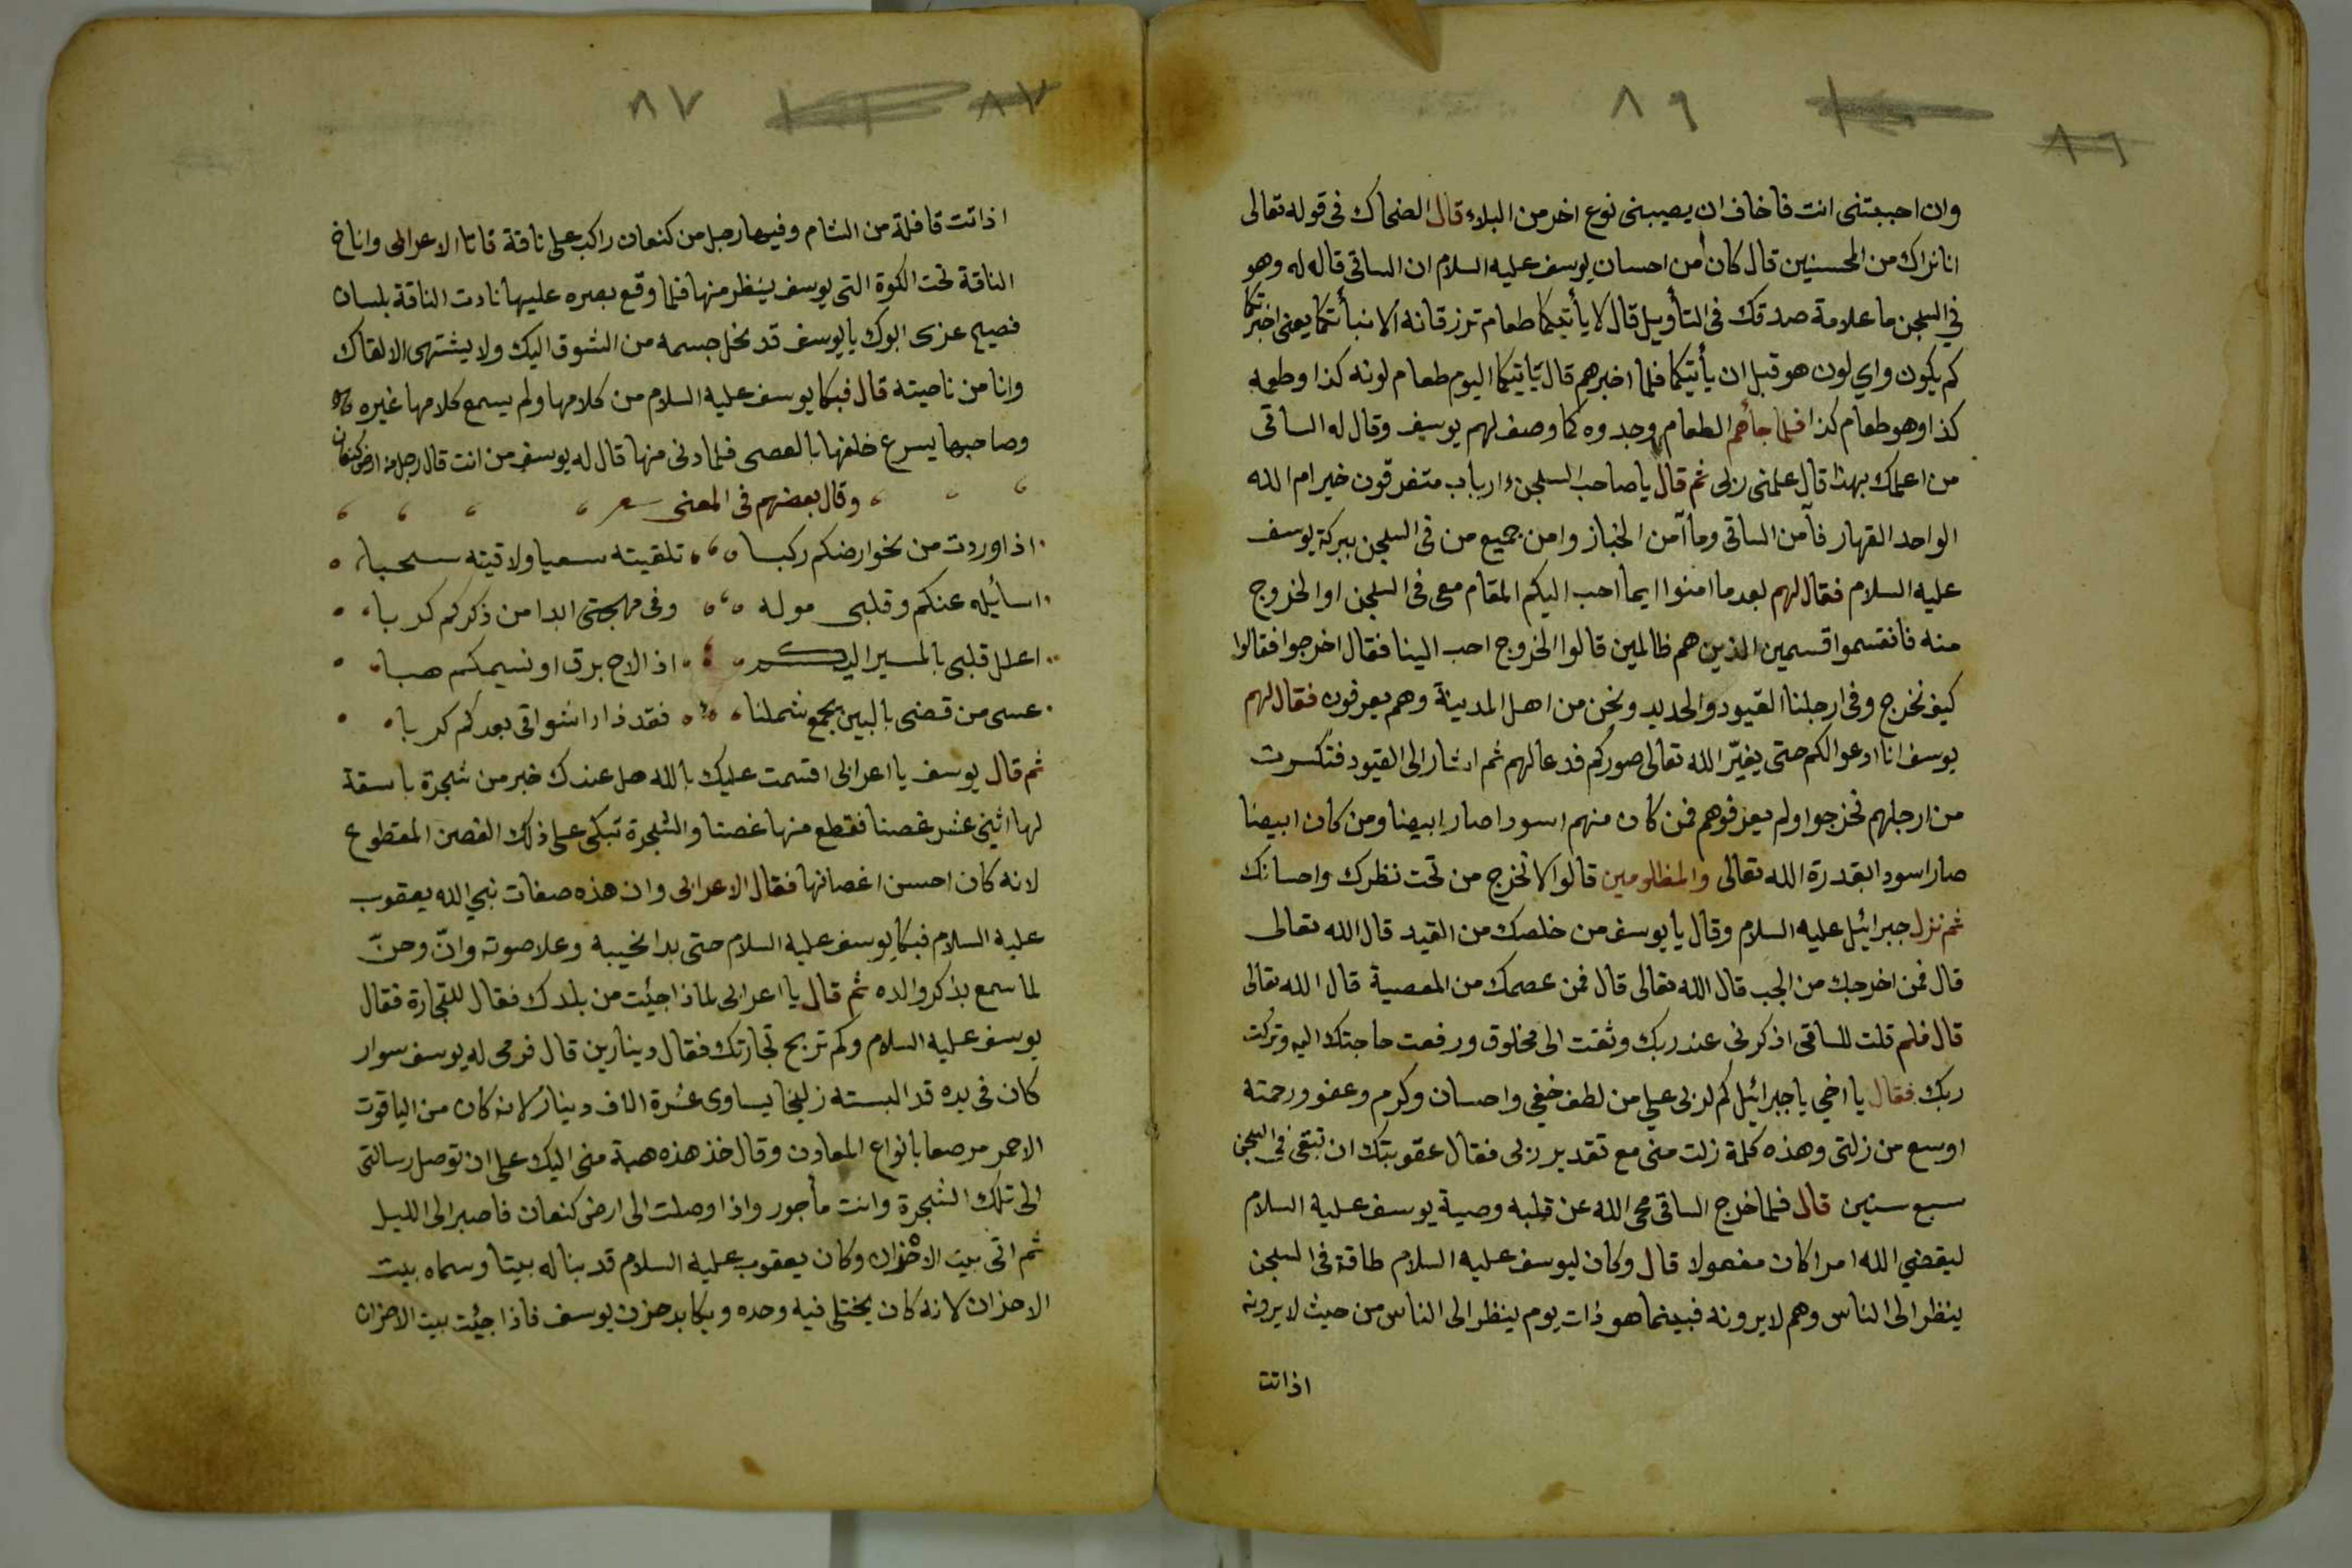 ٨٦
وان احببتنى انت فاخاف ان يصيبنى نوع اخر من البلاء قال الضحاك فى قوله تعالى
انا نراك من المحسنين قال كان من احسان يوسف عليه السلام ان الساقى قال له وهو
في السجن ما علامة صدقك فى التأويل قال لا يأتيكما طعام ترزقانه الا نبأتكما يعنى اخبرتكما
كم يكون واي لون هو قبل ان يأتيكما فلما اخبرهم قال يأتيكما اليوم طعام لونه كذا وطعمه
كذا وهو طعام كذا فلما جأهم الطعام وجدوه كما وصف لهم يوسف وقال له الساقى
من اعلمك بهذا قال علمنى ربى ثم قال يا صاحب السجن ءارباب متفرقون خير ام الله
الواحد القهار فآمن الساقى وما آمن الخباز وامن جميع من فى السجن ببركة يوسف
عليه السلام فقال لهم بعد ما امنوا ايما احب اليكم المقام معى فى السجن او الخروج
منه فانقسموا قسمين الذين هم ظالمين قالوا الخروج احب الينا فقال اخرجوا فقالوا
كيف نخرج وفى ارجلنا القيود والحديد ونحن من اهل المدينة وهم يعرفون فقال لهم
يوسف انا ادعوا لكم حتى يغيّر الله تعالى صوركم فدعا لهم ثم اشار الى القيود فتكسرت
من ارجلهم فخرجوا ولم يعرفوهم فمن كان منهم اسودا صار ابيضا ومن كان ابيضا
صار اسودا بقدرة الله تعالى والمظلومين قالوا لا نخرج من تحت نظرك واحسانك
ثم نزل جبرائيل عليه السلام وقال يا يوسف من خلصك من القيد قال الله تعالى
قال فمن اخرجك من الجب قال الله تعالى قال فمن عصمك من المعصية قال الله تعالى
قال فلم قلت للساقى اذكرنى عند ربك وثقت الى مخلوق ورفعت حاجتك اليه وتركت
ربك فقال يا اخي يا جبرائيل كم لربى علي من لطف خفي واحسان وكرم وعفو ورحمته
اوسع من زلتى وهذه كلمة زلت منى مع تقدير ربى فقال عقوبتك ان تبقى فى السجن
سبع سنين قال فلما خرج الساقى محى الله عن قلبه وصية يوسف عليه السلام
ليقضي الله امرا كان مفعولا قال وكان ليوسف عليه السلام طاقة فى السجن
ينظر الى الناس وهم لا يرونه فبينما هو ذات يوم ينظر الى الناس من حيث لا يرونه
اذ اتت
٨٧
اذ اتت قافلة من الشام وفيها رجل من كنعان راكب على ناقة فاتا الاعرابى واناخ
الناقة تحت الكوة التى يوسف ينظر منها فلما وقع بصره عليها نادت الناقة بلسان
فصيح عزى ابوك يا يوسف قد نحل جسمه من الشوق اليك ولا يشتهى الا لقاك
وانا من ناحيته قال فبكا يوسف عليه السلام من كلامها ولم يسمع كلامها غيره
وصاحبها يسرع خلفها بالعصى فلما دنى منها قال له يوسف من انت قال رجل من ارض كنعان
وقال بعضهم فى المعنى شعر
اذا وردت من نحو ارضكم ركبا تلقيته سعيا ولاقيته سحبا
اسائله عنكم وقلبى موله وفى مهجتى ابدا من ذكركم كربا
اعلل قلبى بالمسير اليكم اذا لاح برق او نسيمكم هبا
عسى من قضى بالبين يجمع شملنا فقد زاد اشواقى بعدكم كربا
ثم قال يوسف يا اعرابى اقسمت عليك بالله هل عندك خبر من شجرة باسقة
لها اثنى عشر غصنا فقطع منها غصنا والشجرة تبكى على ذلك الغصن المقطوع
لانه كان احسن اغصانها فقال الاعرابى وان هذه صفات نبي الله يعقوب
عليه السلام فبكا يوسف عليه السلام حتى بدا نحيبه وعلا صوته وانّ وحنّ
لما سمع بذكر والده ثم قال يا اعرابى لماذا جئت من بلدك فقال للتجارة فقال
يوسف عليه السلام وكم تربح تجارتك فقال دينارين قال فرمى له يوسف سوار
كان فى يده قد البسته زليخا يساوى عشرة الاف دينار لانه كان من الياقوت
الاحمر مرصعا بانواع المعادن وقال خذ هذه هبة منى اليك على ان توصل رسالتى
الى تلك الشجرة وانت مأجور واذا وصلت الى ارض كنعان فاصبر الى الليل
ثم اتى بيت الاحزان وكان يعقوب عليه السلام قد بنا له بيتا وسماه بيت
الاحزان لانه كان يختلى فيه وحده ويكابد حزن يوسف فاذا جئت بيت الاحزان